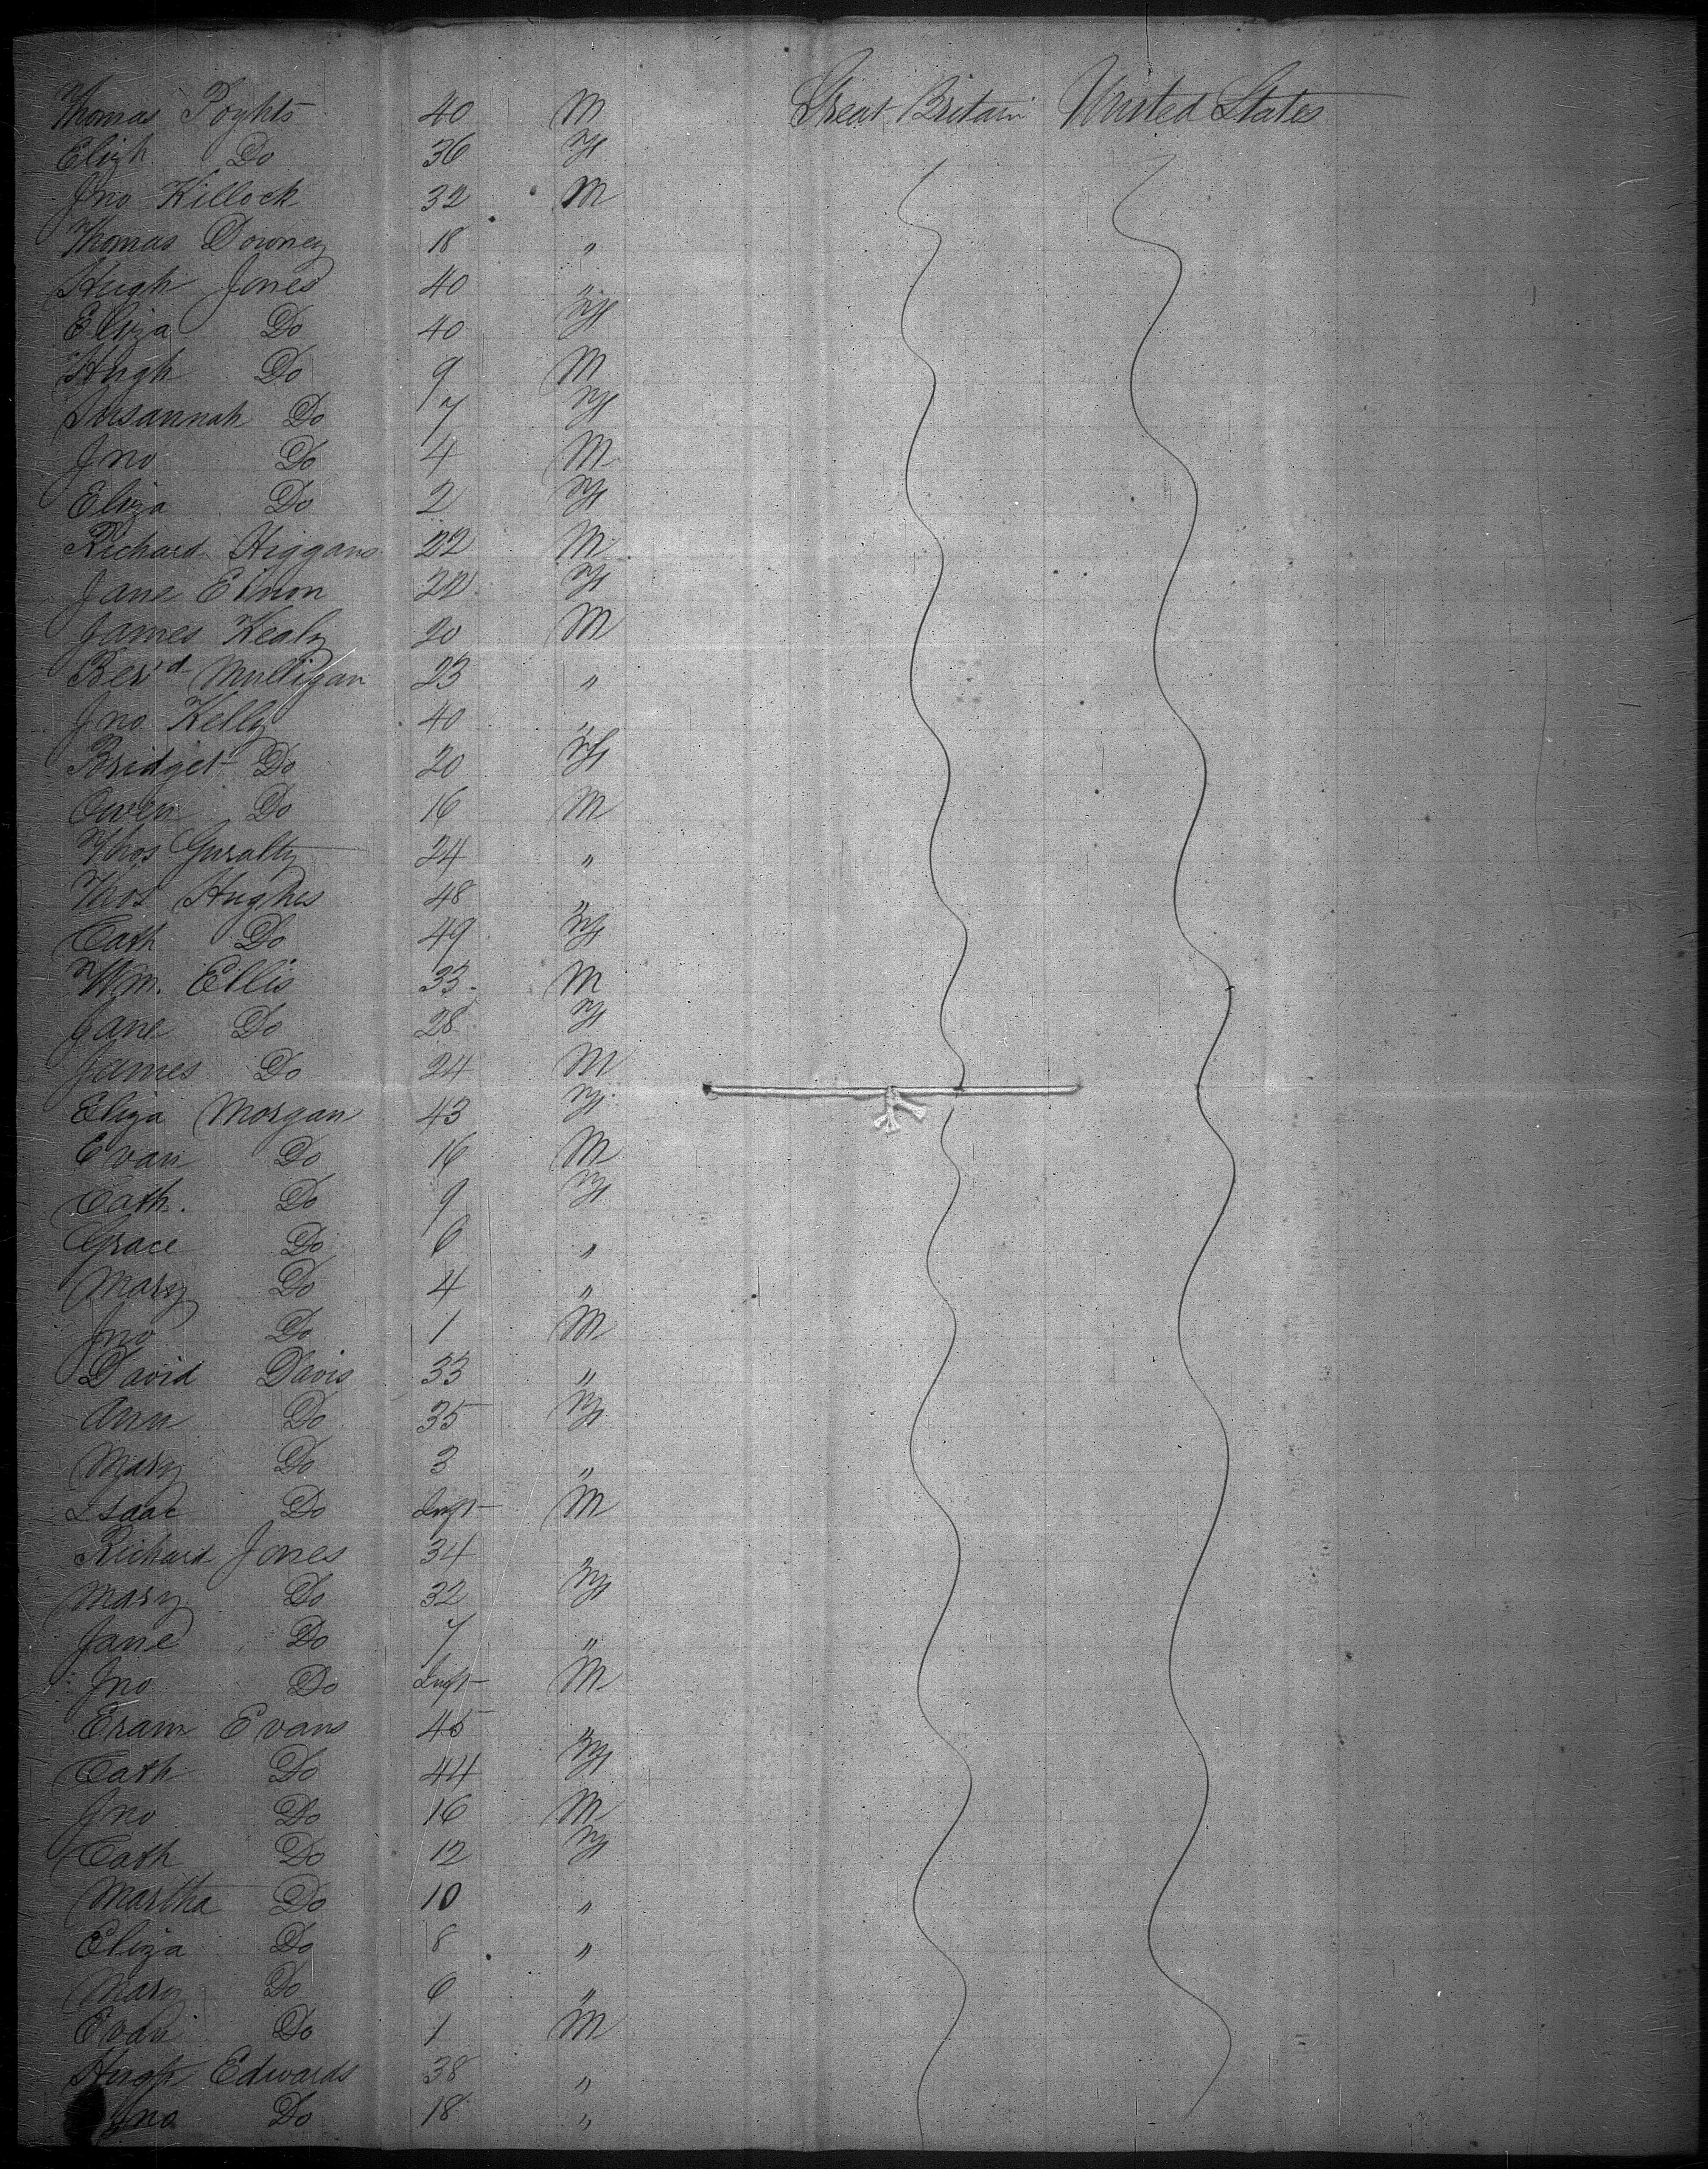 Thomas Poyhts 40 M Great Britain United States
Elizh Do 36 F
Jno Killock 32 M
Thomas Downey 18 "
Hugh Jones 40 "
Eliza Do 40 F
Hugh Do 9 M
Susannah Do 7 F
Jno Do 4 M
Eliza Do 2 F
Richard Higgans 22 M
Jane Einon 22 F
James Kealy 20 M
Ber'd Mulligan 23 "
Jno Kelly 40 "
Bridget Do 20 F
Owen Do 16 M
Thos Guralty 24 "
Thos Hughes 48 "
Cath Do 49 F
Wm. Ellis 33 M
Jane Do 28 F
James Do 24 M
Eliza Morgan 43 F
Evan Do 16 M
Cath. Do 9 F
Grace Do 6 "
Mary Do 4 "
Jno Do 1 M
David Davis 33 "
Ann Do 35 F
Mary Do 3 "
Isaac Do Inft M
Richard Jones 34 "
Mary Do 32 F
Jane Do 7 "
Jno Do Inft M
Evans 45 "
Cath Do 44 F
Jno Do 16 M
Cath Do 12 F
Martha Do 10 "
Eliza Do 8 "
Mary Do 6 "
Evan Do 1 M
Hugh Edwards 38 "
Jno Do 18 "